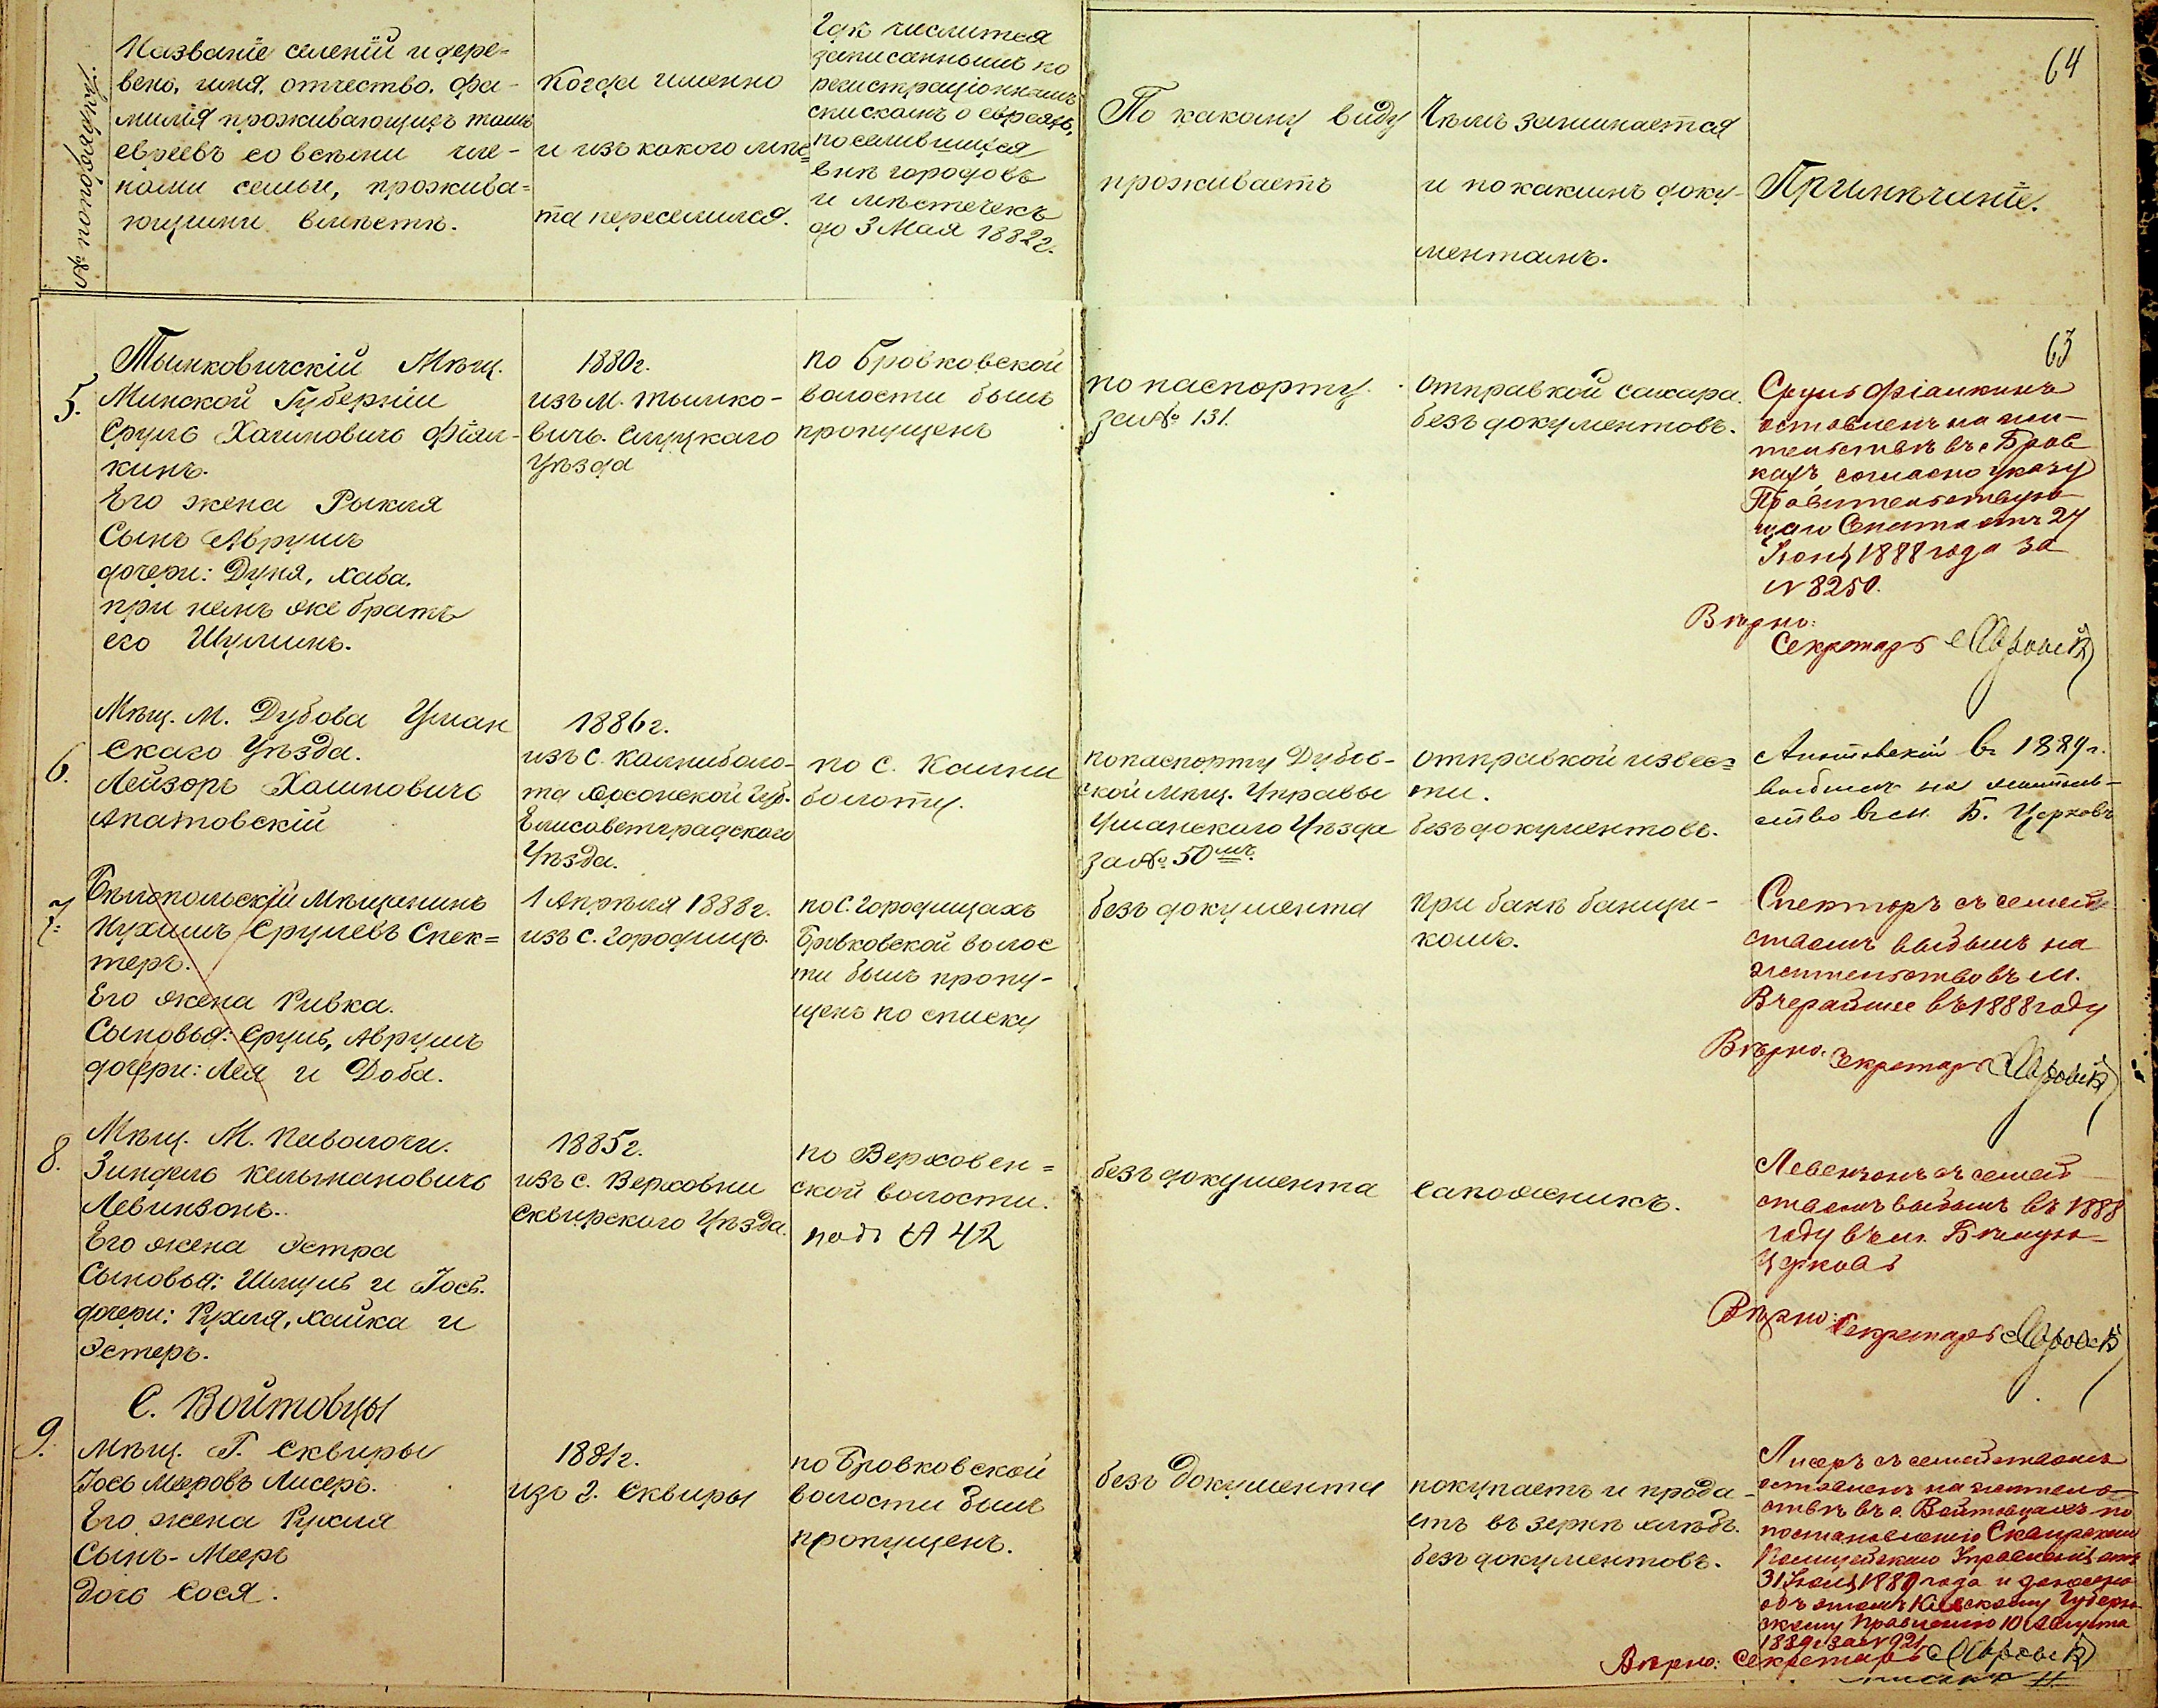 № по порядку.
Названіе селеній и дере-
вень, имя, отчество, фа-
милія проживающихъ тамъ
евреевъ со всѣми чле-
нами семьи, прожива-
ющими вмѣстѣ.
Когда именно
и изъ какого мѣс-
та переселился.
Гдѣ числится
записаннымъ по
регистраціоннымъ
спискамъ о евреяхъ,
поселившихся
внѣ городовъ
и мѣстечекъ
до 3 Мая 1882 г.
По какому виду
проживаетъ
Чѣмъ занимается
и по какимъ доку-
ментамъ.
Примѣчаніе.
64
5.
Тымковичскій Мѣщ.
Минской Губерніи
Сруль Хаимовичъ Фіал-
кинъ.
Его жена Рыкля
Сынъ Аврумъ
дочери: Дуня, Хава.
при немъ же братъ
его Шулимъ.
1880 г.
изъ М. Тымко-
вичъ. Слуцкаго
Уѣзда
по Бровковской
волости былъ
пропущенъ
по паспорту.
за № 131.
отправкой сахара.
безъ документовъ.
63
Сруль Фіалкинъ
оставленъ на жи-
тельствѣ въ с. Бров
кахъ согласно указу
Правительствую-
щаго Сената отъ 27
Іюня 1888 года за
№ 8250.
Вѣрно:
Секретарь
6.
Мѣщ. М. Дубова Уман
скаго Уѣзда.
Лейзоръ Хаимовичъ
Апатовскій
1886 г.
изъ С. Калниболо-
та Херсонской Губ.
Елисаветградскаго
Уѣзда.
по С. Кални
болоту.
по паспорту Дубов-
ской Мѣщ. Управы
Уманскаго Уѣзда
за № 50 мъ
отправкой извес-
ти.
безъ документовъ.
Апатовскій въ 1889 г.
выбылъ на житель-
ство въ м. Б. Церковь
7.
Бѣлопольскій Мѣщанинъ
Нухимъ Срулевъ Спек-
теръ.
Его жена Ривка.
Сыновья: Сруль, Аврумъ
дочери: Лея и Доба.
1 Апрѣля 1888 г.
изъ С. Городищъ.
по С. Городищахъ
Бровковской волос
ти былъ пропу-
щенъ по списку
безъ документа
при банѣ банщи-
комъ.
Спекторъ съ семей
ствомъ выбылъ на
жительство въ м.
Вчерайше въ 1888 году
Вѣрно. Секретарь
8.
Мѣщ. М. Паволочи.
Зиндель Кельмановичъ
Левинзонъ.
Его жена Эстра
Сыновья: Шмуль и Іось.
дочери: Рухля, Хайка и
Эстеръ.
1885 г.
изъ С. Верховни
Сквирскаго Уѣзда.
по Верховен-
ской волости.
подъ № 42
безъ документа
сапожникъ.
Левензонъ съ семей
ствомъ выбылъ въ 1888
году въ м. Бѣлую-
Церковь
Вѣрно:
Секретарь
С. Войтовцы
9.
Мѣщ. Г. Сквиры
Іось Меровъ Лисеръ.
Его жена Рухля
Сынъ - Мееръ
Дочь Сося.
1881 г.
изъ Г. Сквиры
по Бровковской
волости былъ
пропущенъ.
безъ документа
покупаетъ и прода-
етъ въ зернѣ хлѣбъ.
безъ документовъ.
Лисеръ съ семействомъ
оставленъ на житель-
ствѣ въ с. Войтовцахъ по
постановленію Сквирскаго
Полицейскаго Управленія отъ
31 Іюля 1889 года и донесено
объ этомъ Кіевскому Губерн-
скому Правленію 10 Августа
1889 г. за № 921
Вѣрно: Секретарь